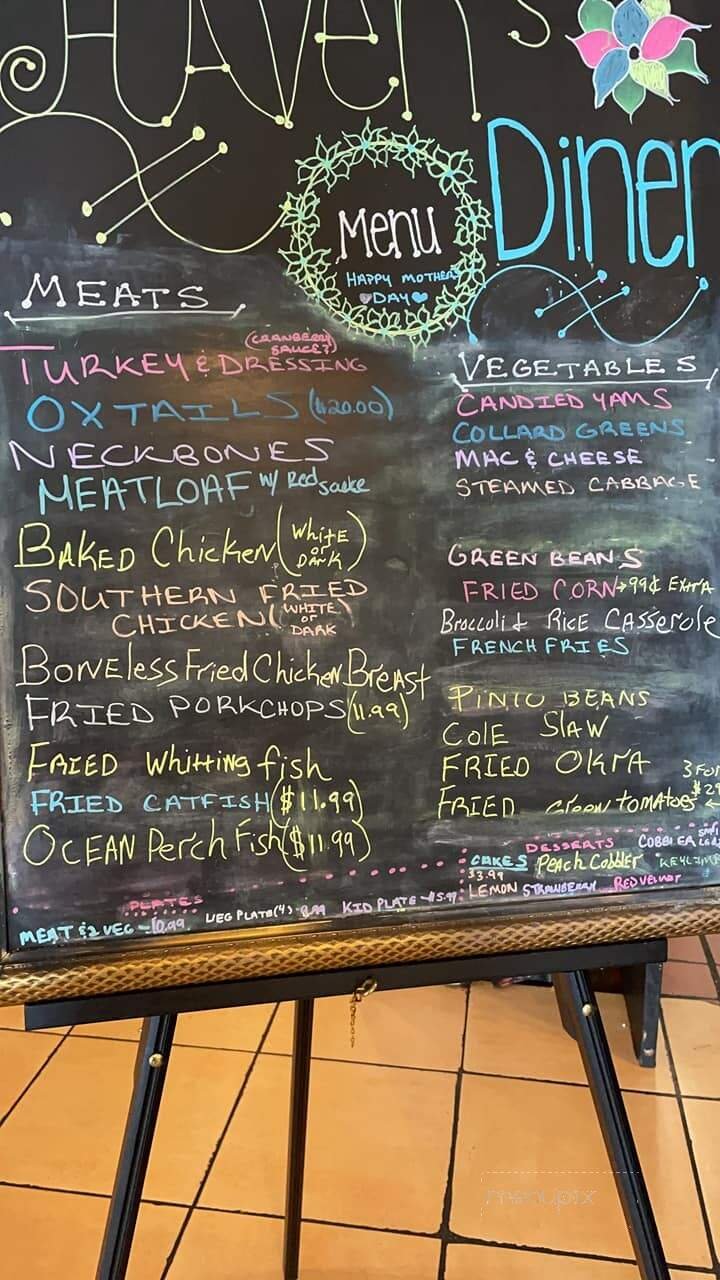 HAVEN'S
Diner
Menu
HAPPY MOTHERS
DAY
MEATS
TURKEY & DRESSING (CRANBERRY SAUCE?)
OXTAILS ($20.00)
NECKBONES
MEATLOAF w/ Red sauke
BAKED ChickEN (WhitE or DARK)
SOUTHERN FRIED
CHICKEN (WHITE or DARK)
BONEless Fried Chicken BreAst
FRIED PORKCHOPS (11.99)
FRIED Whitting fish
FRIED CATFISH ($11.99)
OCEAN Perch Fish ($11.99)
VEGETABLES
CANDIED YAMS
COLLARD GREENS
MAC & CHEESE
STEAMED CABBAGE
GREEN BEANS
FRIED CORN → 99¢ EXTRA
Broccoli & RicE CASserole
FRENCH FRIES
PINTO BEANS
ColE SlAW
FRIED OKrA
FRIED Green tomAtoes
3 FOR
DESSERTS
CAKES PeAch Cobbler
$3.99
LEMON STRAWBERRY RED VELVET
PLATES
MEAT & 2 VEG - 10.99 VEG PLATE (4) - 8.99 KID PLATE - $5.99
menupix